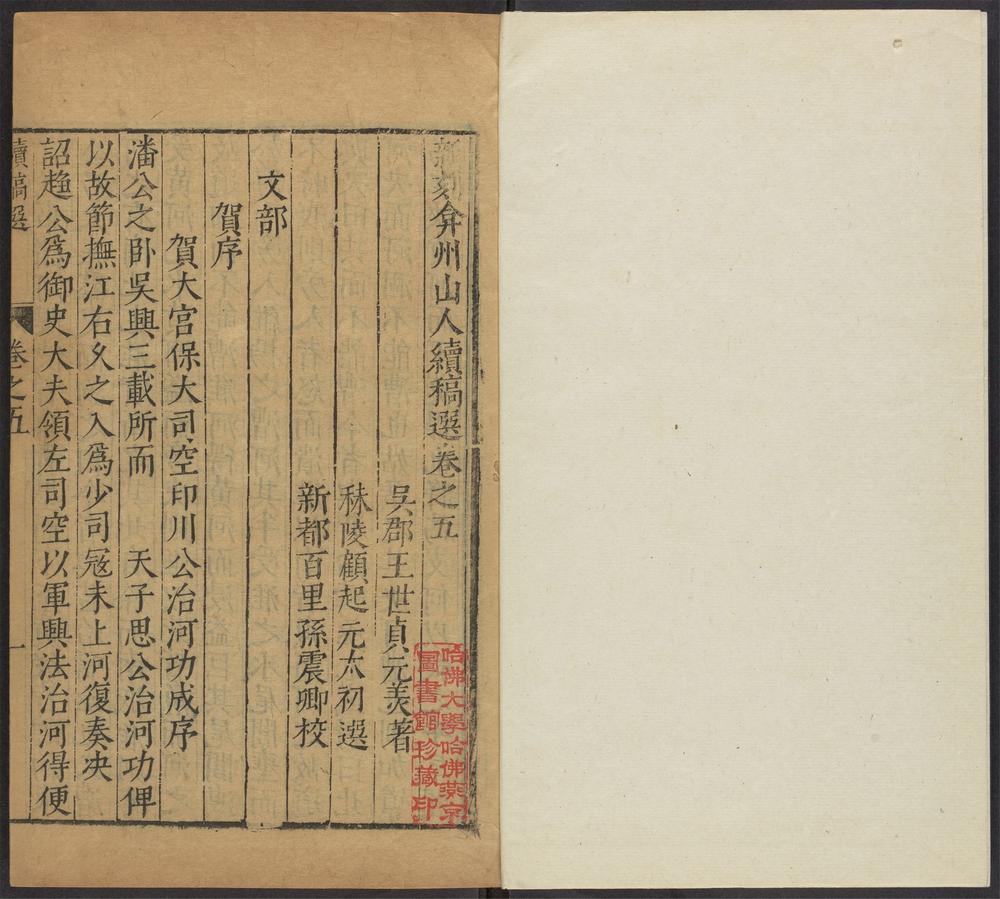 新刻弇州山人續稿選卷之五
吳郡王世貞元美著
秣陵顧起元太初選
新都百里孫震卿校
文部
賀序
賀大宮保大司空印川公治河功成序
潘公之卧吳興三載所而　天子思公治河功俾
以故節撫江右久之入爲少司冦未上河復奏决
詔趣公爲御史大夫領左司空以軍興法治河得便
續稿選　卷之五　一
哈佛大學哈佛燕京
圖書館珍藏印